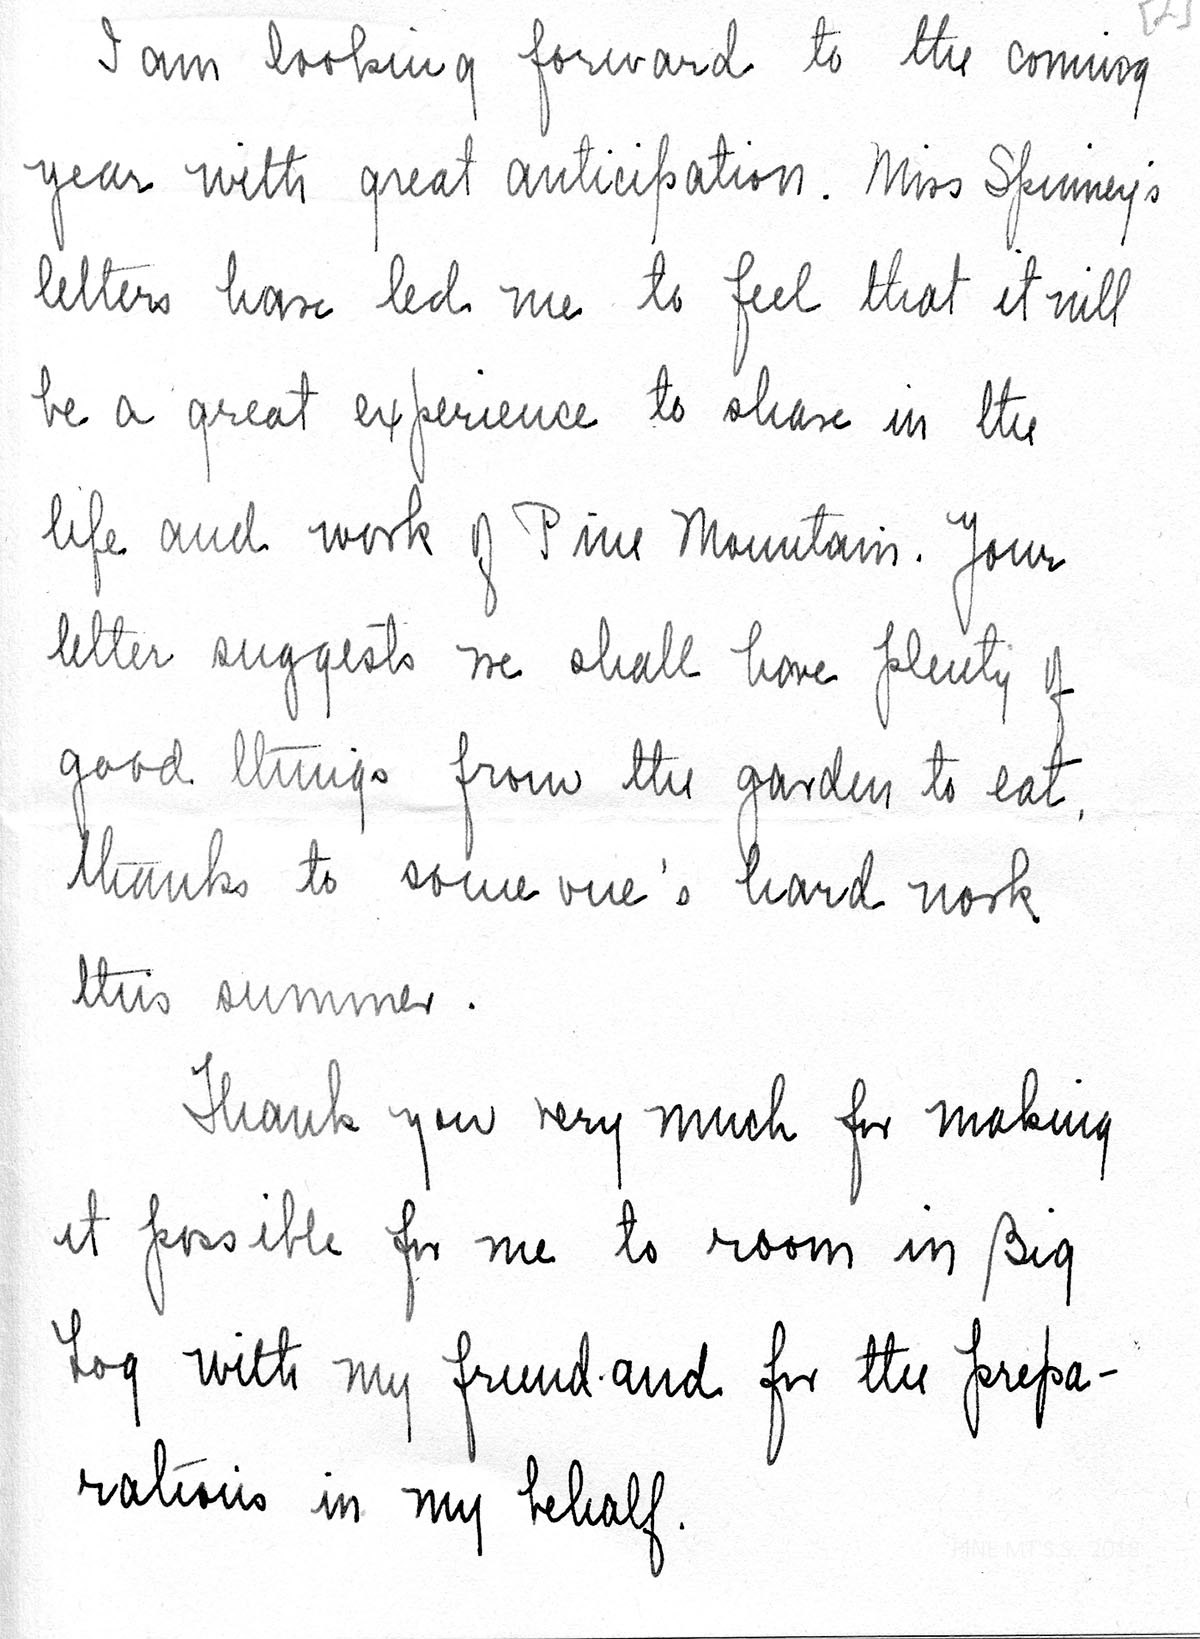 [2]
I am looking forward to the coming
year with great anticipation. Miss Spinney's
letters have led me to feel that it will
be a great experience to share in the
life and work of Pine Mountain. Your
letter suggests we shall have plenty of
good things from the garden to eat,
thanks to someone's hard work
this summer.
Thank you very much for making
it possible for me to room in Big
Log with my friend and for the prepa-
rations in my behalf.
PINE MT S.S. 2018